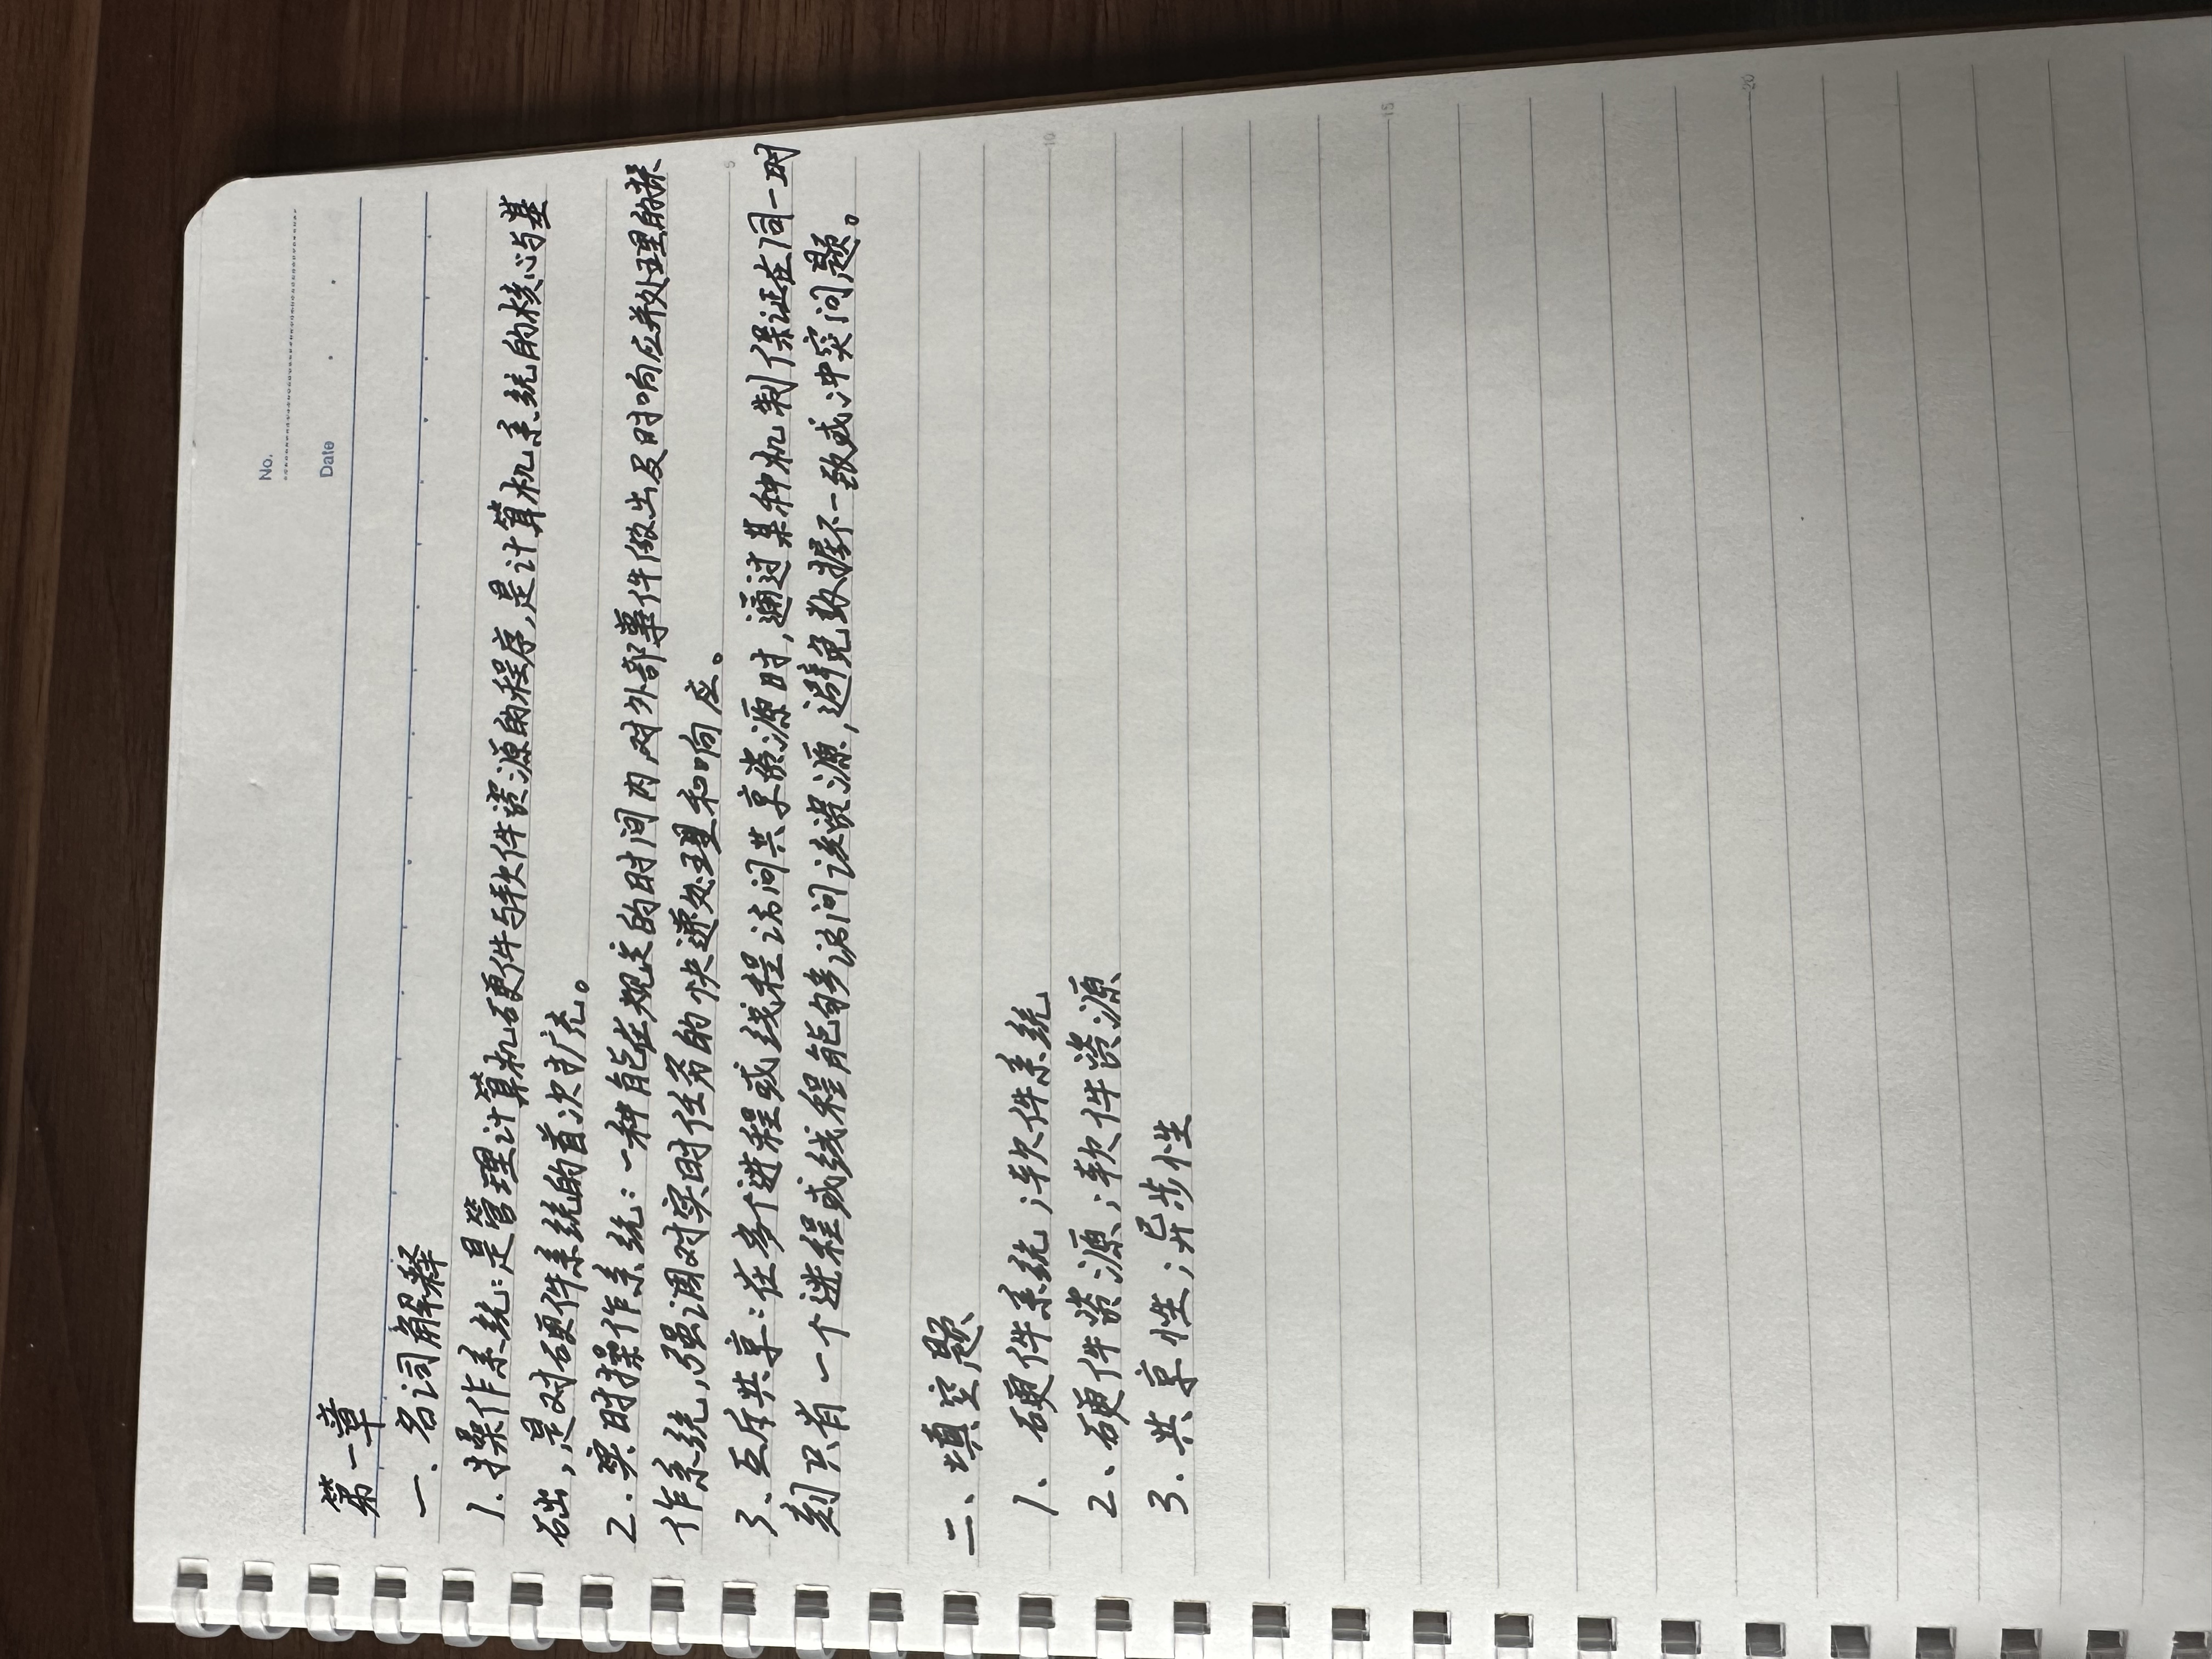 No.
Date
第一章
一、名词解释
1.操作系统:是管理计算机硬件与软件资源的程序,是计算机系统的核心与基
础,是对硬件系统的首次扩充。
2.实时操作系统:一种能在规定的时间内,对外部事件做出及时响应并处理的操
作系统,强调对实时任务的快速处理和响应。
5
3、互斥共享:在多个进程或线程访问共享资源时,通过某种机制保证在同一时
刻只有一个进程或线程能够访问该资源,避免数据不一致或冲突问题。
二、填空题
1、硬件系统;软件系统
10
2、硬件资源;软件资源
3.共享性;异步性
15
20